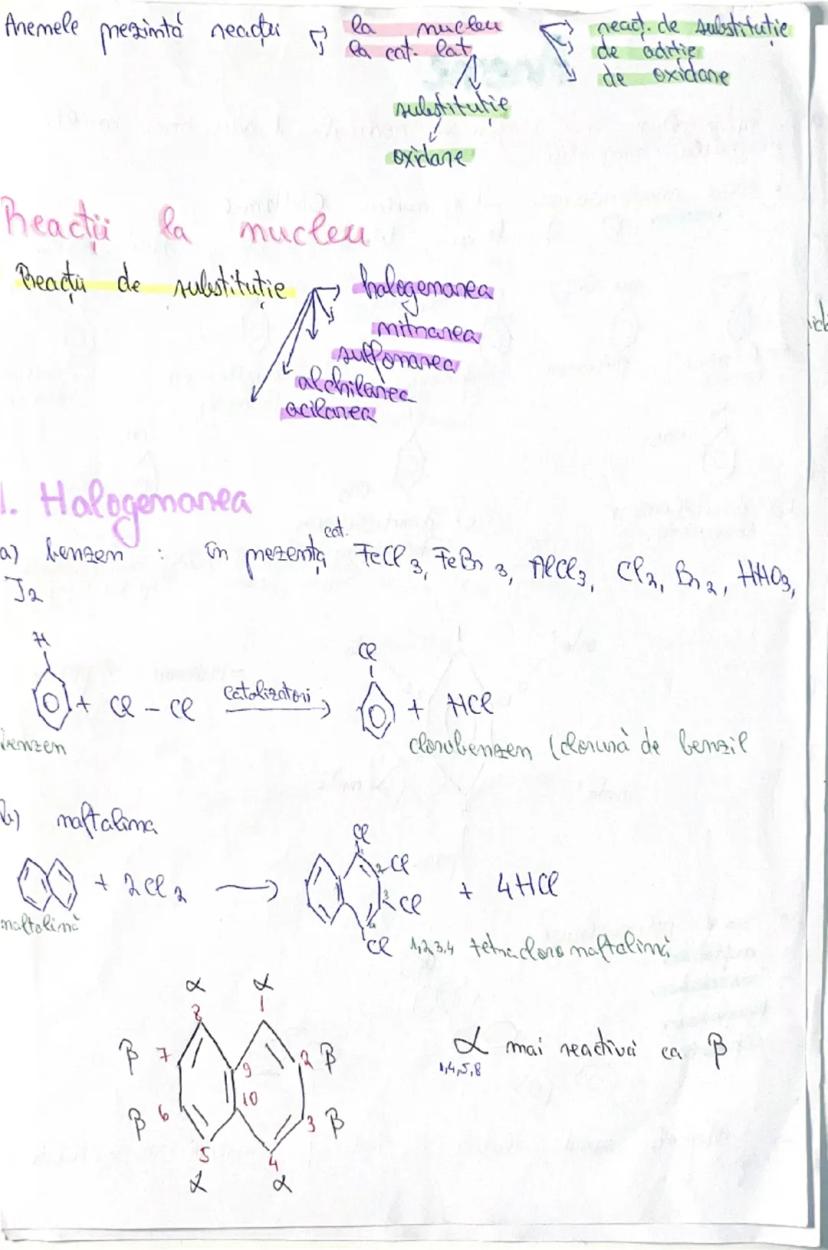 Arenele prezintă reacții la nucleu react. de substituție
la cat. lat de adiție
de oxidare
substituție
oxidare
Reacții la nucleu
Reacții de substituție halogenarea
nitrarea
sulfonarea
alchilarea
acilarea
1. Halogenarea
a) benzen : în prezența cat. FeCl3, FeBr3, AlCl3, Cl2, Br2, HNO3,
I2
H
+ Cl – Cl catalizatori
Cl
+ HCl
benzen clorobenzen (clorură de benzil
b) naftalina
+ 2Cl2
Cl
2 Cl
3 Cl
Cl
+ 4HCl
naftalină 1,2,3,4 tetracloro naftalină
α α
8 1
β 7 9 2 β
α mai reactivă ca β
1,4,5,8
β 6 10 3 β
5 4
α α